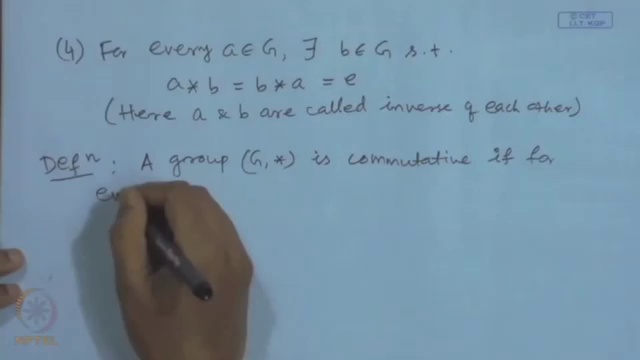 © CET
I.I.T. KGP
(4) For every a ∈ G, ∃ b ∈ G s.t.
a * b = b * a = e
(Here a & b are called inverse of each other)
Defⁿ : A group (G, *) is commutative if for
NPTEL